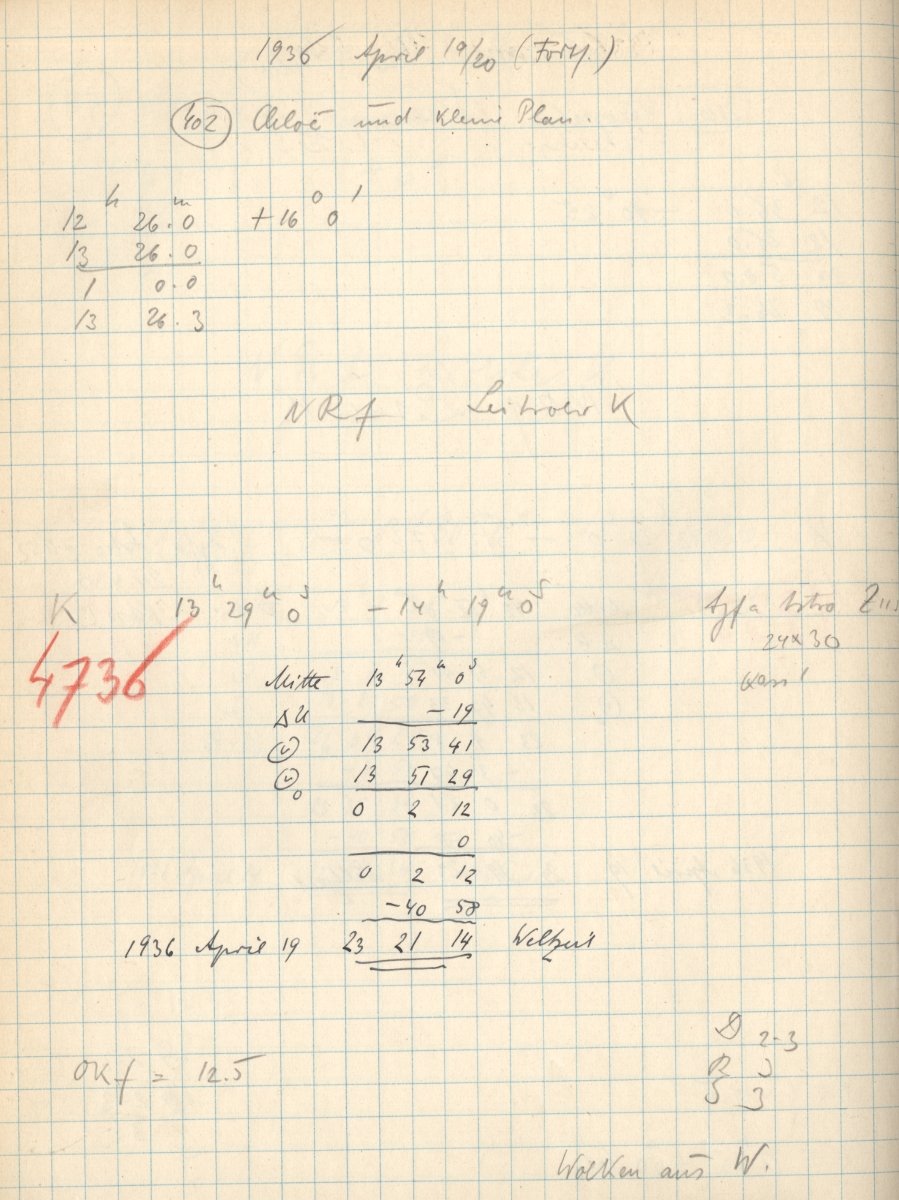 1936 April 19/20 (Forts.)
402 Chloë und kleine Plan.
12 h 26.0 m + 16 ° 0 '
13 26.0
1 0.0
13 26.3
NRf Leitrohr K
K 13 h 29 m 0 s – 14 h 19 m 0 s Agfa Astro
24x30
4736
Mitte 13 h 54 m 0 s
ΔU – 19
13 53 41
13 51 29
0 2 12
0
0 2 12
– 40 58
1936 April 19 23 21 14 Weltzeit
D 2-3
OKf = 12.5
R 3
S 3
Wolken aus W.